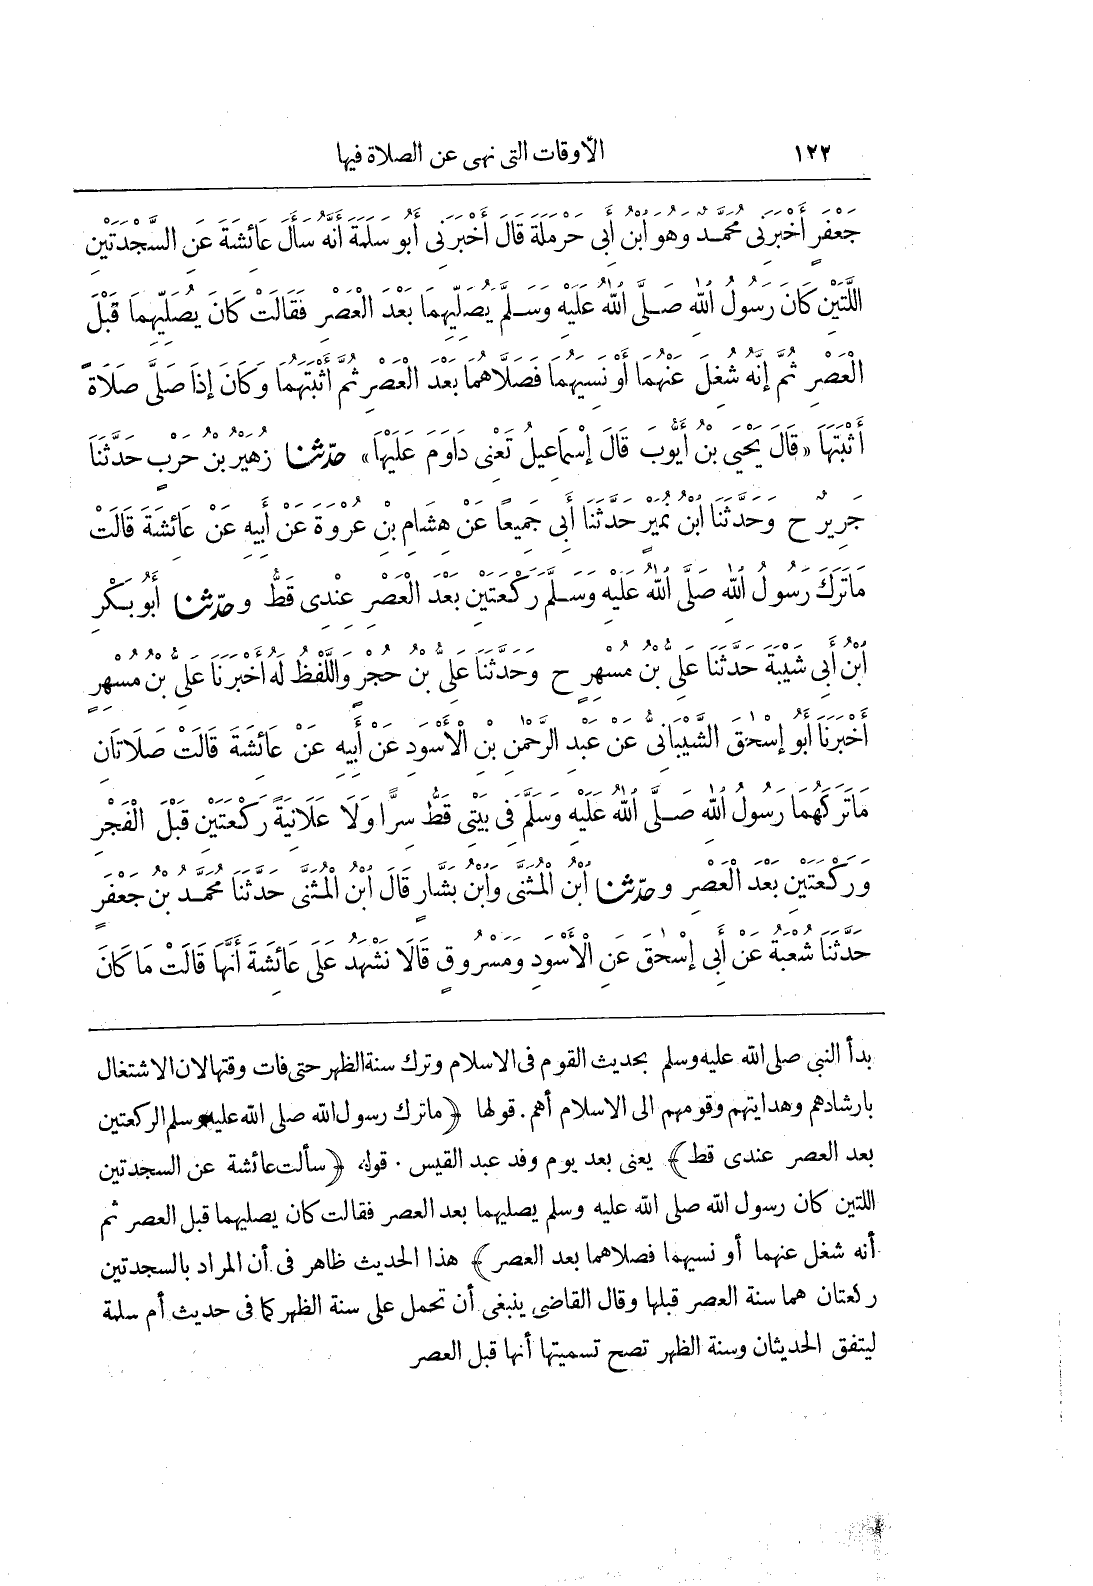 ١٢٢ الأوقات التى نهى عن الصلاة فيها
جَعْفَرٍ أَخْبَرَنِى مُحَمَّدٌ وَهُوَ ابْنُ أَبِى حَرْمَلَةَ قَالَ أَخْبَرَنِى أَبُو سَلَمَةَ أَنَّهُ سَأَلَ عَائِشَةَ عَنِ السَّجْدَتَيْنِ
اللَّتَيْنِ كَانَ رَسُولُ اللهِ صَلَّى اللهُ عَلَيْهِ وَسَلَّمَ يُصَلِّيهِمَا بَعْدَ الْعَصْرِ فَقَالَتْ كَانَ يُصَلِّيهِمَا قَبْلَ
الْعَصْرِ ثُمَّ إِنَّهُ شُغِلَ عَنْهُمَا أَوْ نَسِيَهُمَا فَصَلَّاهُمَا بَعْدَ الْعَصْرِ ثُمَّ أَثْبَتَهُمَا وَكَانَ إِذَا صَلَّى صَلَاةً
أَثْبَتَهَا «قَالَ يَحْيَى بْنُ أَيُّوبَ قَالَ إِسْمَاعِيلُ تَعْنِى دَاوَمَ عَلَيْهَا» حدّثنا زُهَيْرُ بْنُ حَرْبٍ حَدَّثَنَا
جَرِيرٌ ح وَحَدَّثَنَا ابْنُ نُمَيْرٍ حَدَّثَنَا أَبِى جَمِيعًا عَنْ هِشَامِ بْنِ عُرْوَةَ عَنْ أَبِيهِ عَنْ عَائِشَةَ قَالَتْ
مَاتَرَكَ رَسُولُ اللهِ صَلَّى اللهُ عَلَيْهِ وَسَلَّمَ رَكْعَتَيْنِ بَعْدَ الْعَصْرِ عِنْدِى قَطُّ وحدّثنا أَبُو بَكْرِ
ابْنُ أَبِى شَيْبَةَ حَدَّثَنَا عَلِىُّ بْنُ مُسْهِرٍ ح وَحَدَّثَنَا عَلِىُّ بْنُ حُجْرٍ وَاللَّفْظُ لَهُ أَخْبَرَنَا عَلِىُّ بْنُ مُسْهِرٍ
أَخْبَرَنَا أَبُو إِسْحٰقَ الشَّيْبَانِىُّ عَنْ عَبْدِ الرَّحْمٰنِ بْنِ الْأَسْوَدِ عَنْ أَبِيهِ عَنْ عَائِشَةَ قَالَتْ صَلَاتَانِ
مَاتَرَكَهُمَا رَسُولُ اللهِ صَلَّى اللهُ عَلَيْهِ وَسَلَّمَ فِى بَيْتِى قَطُّ سِرًّا وَلَا عَلَانِيَةً رَكْعَتَيْنِ قَبْلَ الْفَجْرِ
وَرَكْعَتَيْنِ بَعْدَ الْعَصْرِ وحدّثنا ابْنُ الْمُثَنَّى وَابْنُ بَشَّارٍ قَالَ ابْنُ الْمُثَنَّى حَدَّثَنَا مُحَمَّدُ بْنُ جَعْفَرٍ
حَدَّثَنَا شُعْبَةُ عَنْ أَبِى إِسْحٰقَ عَنِ الْأَسْوَدِ وَمَسْرُوقٍ قَالَا نَشْهَدُ عَلَى عَائِشَةَ أَنَّهَا قَالَتْ مَا كَانَ
بدأ النبى صلى الله عليه وسلم بحديث القوم فى الاسلام وترك سنة الظهر حتى فات وقتها لان الاشتغال
بارشادهم وهدايتهم وقومهم الى الاسلام أهم. قولها ﴿ماترك رسول الله صلى الله عليه وسلم الركعتين
بعد العصر عندى قط﴾ يعنى بعد يوم وفد عبد القيس. قوله ﴿سألت عائشة عن السجدتين
اللتين كان رسول الله صلى الله عليه وسلم يصليهما بعد العصر فقالت كان يصليهما قبل العصر ثم
أنه شغل عنهما أو نسيهما فصلاهما بعد العصر﴾ هذا الحديث ظاهر فى أن المراد بالسجدتين
ركعتان هما سنة العصر قبلها وقال القاضى ينبغى أن تحمل على سنة الظهر كما فى حديث أم سلمة
ليتفق الحديثان وسنة الظهر تصح تسميتها أنها قبل العصر